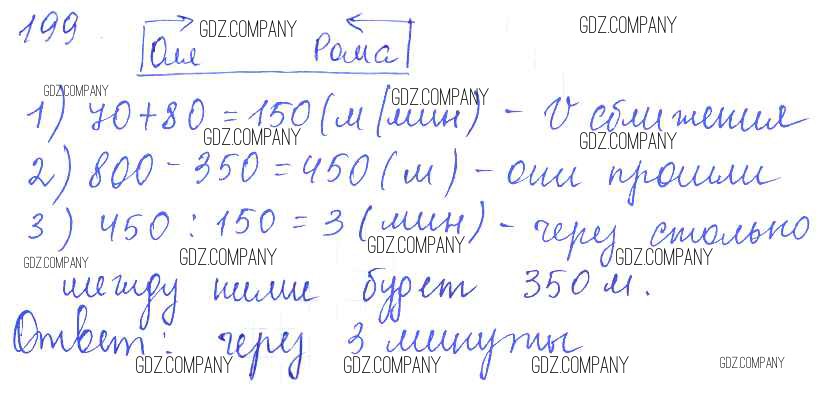 199 GDZ.COMPANY GDZ.COMPANY
Оля Рома
GDZ.COMPANY GDZ.COMPANY
1) 70 + 80 = 150 (м/мин) - V сближения
GDZ.COMPANY GDZ.COMPANY
2) 800 - 350 = 450 (м) - они прошли
3) 450 : 150 = 3 (мин) - через столько
GDZ.COMPANY GDZ.COMPANY GDZ.COMPANY GDZ.COMPANY
между ними будет 350 м.
Ответ: через 3 минуты
GDZ.COMPANY GDZ.COMPANY GDZ.COMPANY GDZ.COMPANY